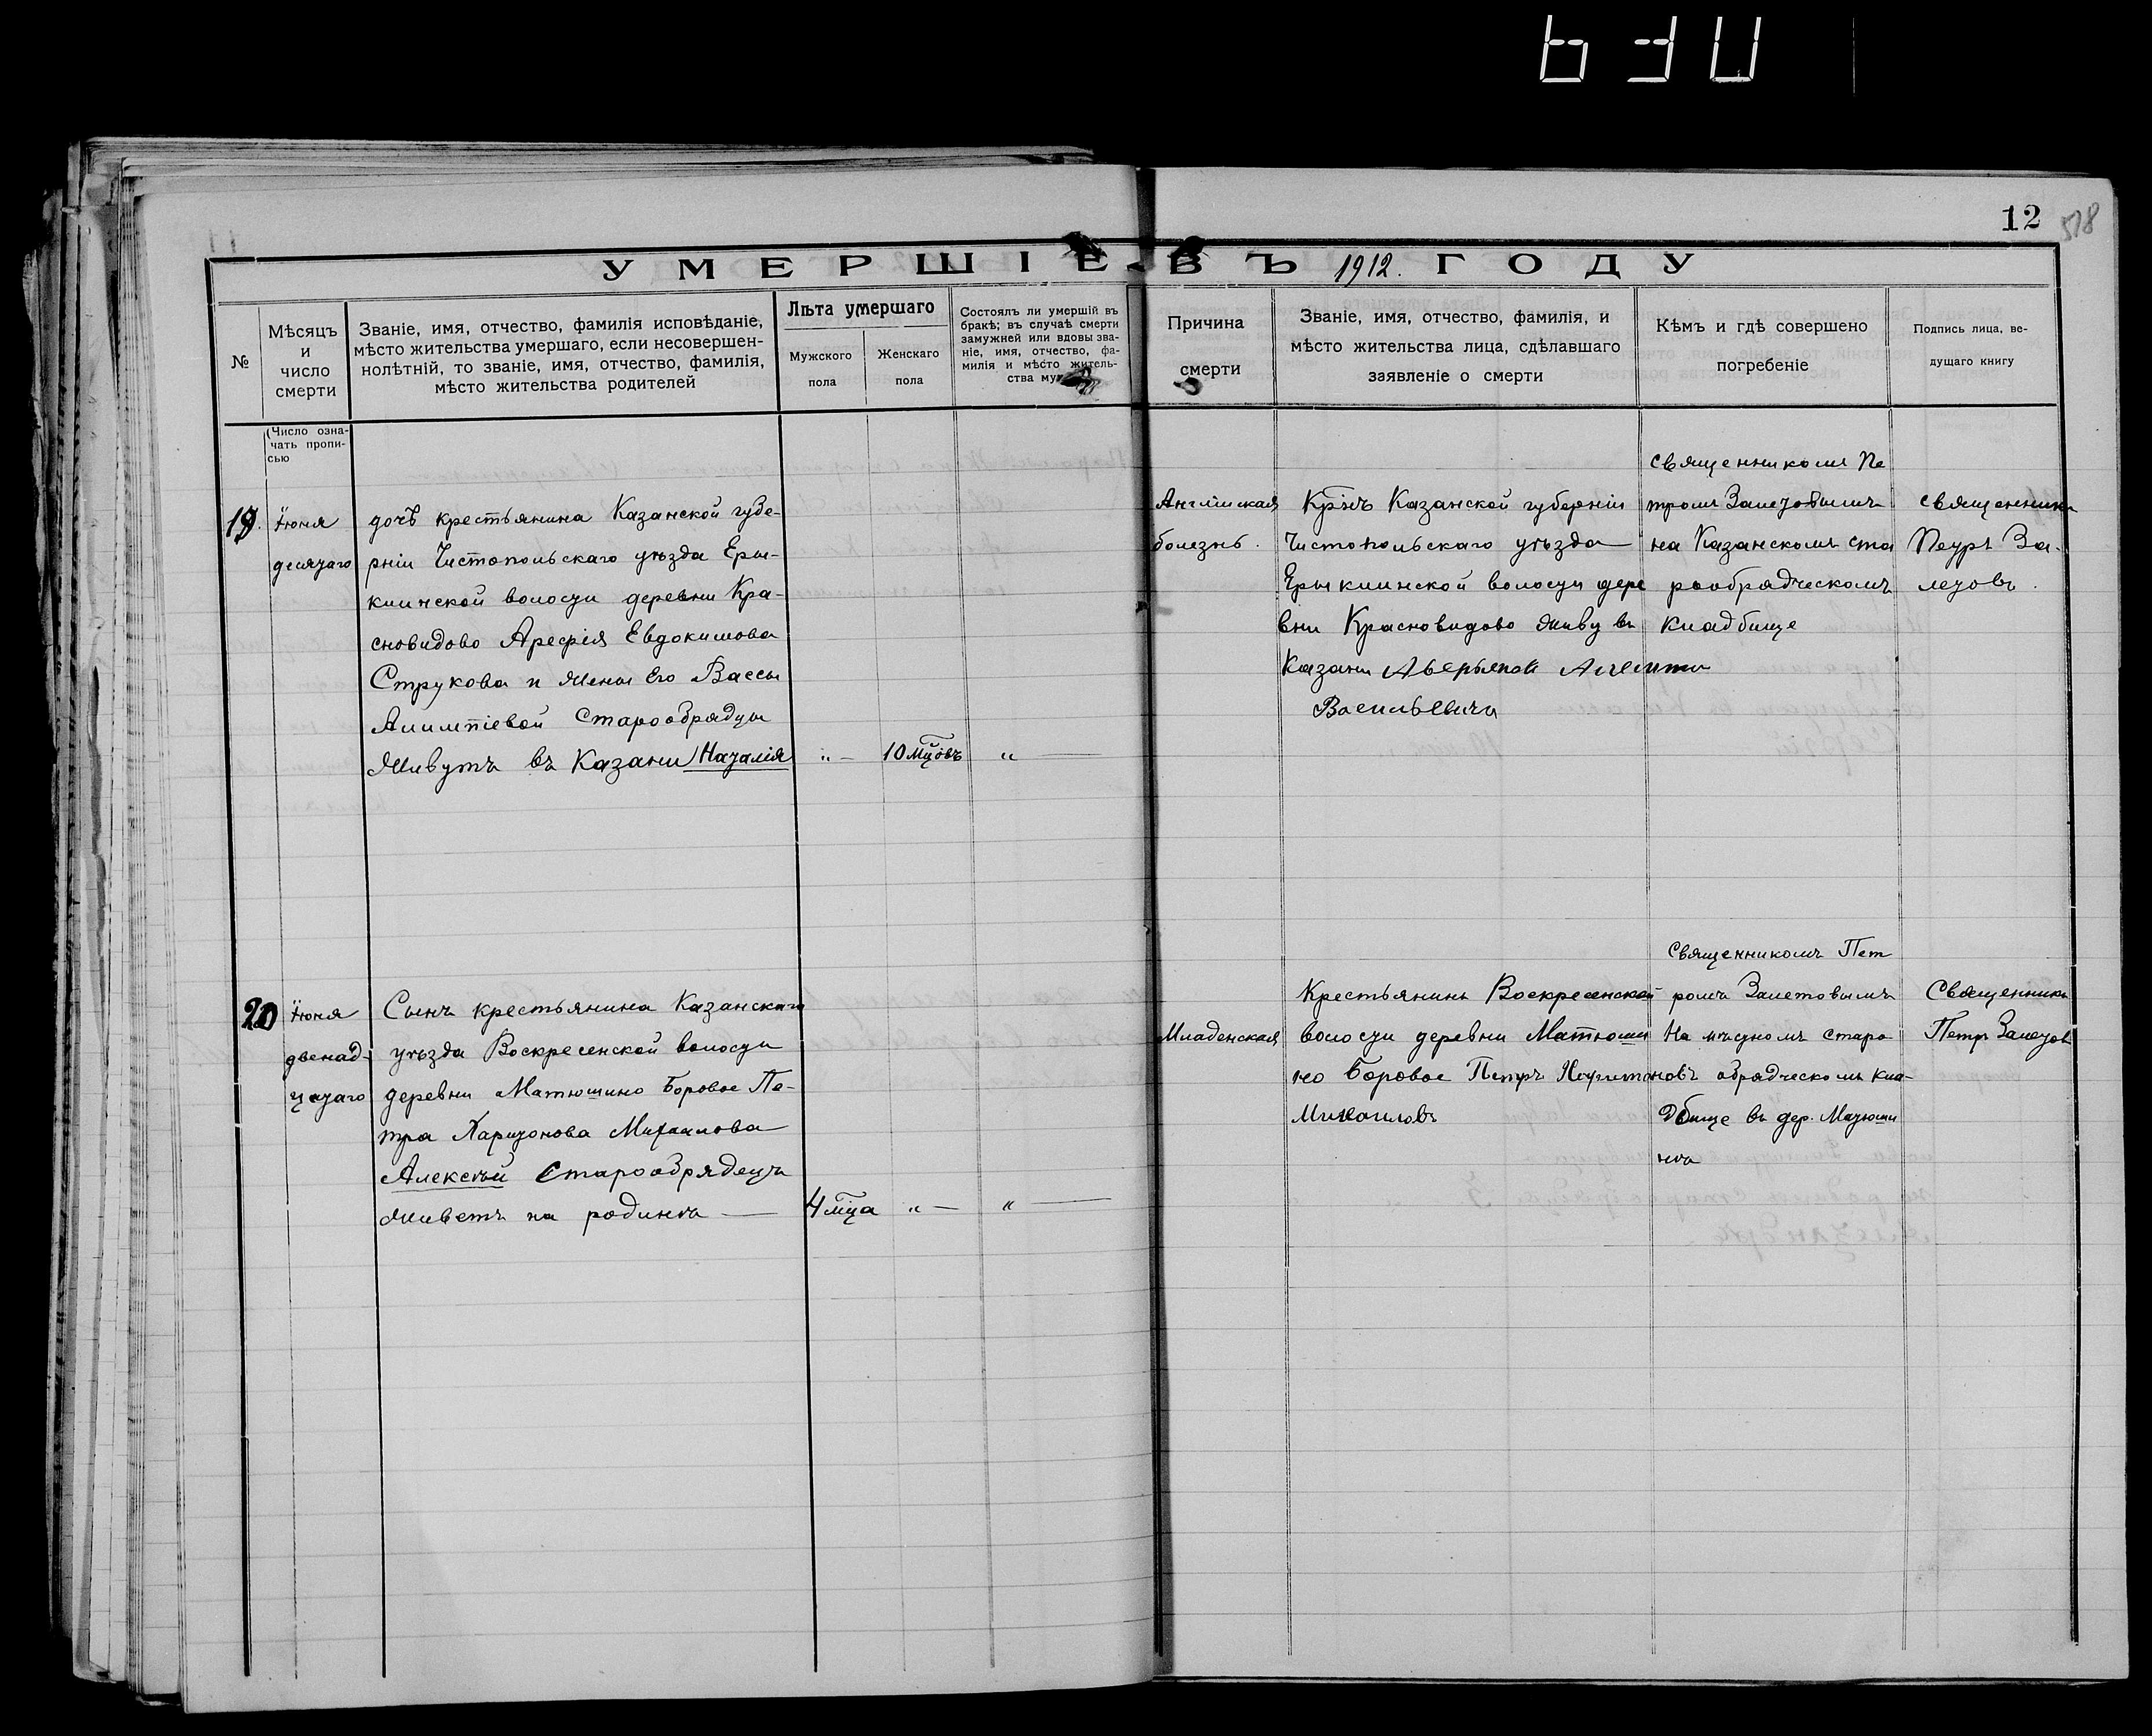 630
12
518
УМЕРШІЕ ВЪ 1912. ГОДУ
№
Мѣсяцъ
и
число
смерти
Званіе, имя, отчество, фамилія исповѣданіе,
мѣсто жительства умершаго, если несовершен-
нолѣтній, то званіе, имя, отчество, фамилія,
мѣсто жительства родителей
Лѣта умершаго
Мужского
пола
Женскаго
пола
Состоялъ ли умершій въ
бракѣ; въ случаѣ смерти
замужней или вдовы зва-
ніе, имя, отчество, фа-
милія и мѣсто житель-
ства
Причина
смерти
Званіе, имя, отчество, фамилія, и
мѣсто жительства лица, сдѣлавшаго
заявленіе о смерти
Кѣмъ и гдѣ совершено
погребеніе
Подпись лица, ве-
дущаго книгу
(Число озна-
чать пропи-
сью
19.
Іюня
десятаго
дочъ крестьянина Казанской губе-
рніи Чистопольскаго уѣзда Еры-
клинской волости деревни Кра-
сновидово Арефія Евдокимова
Струкова и жены его Вассы
Алимпіевой Старообрядцы
Живутъ въ Казани Наталія
" —
10 мцовъ
" —
Англійская
болезнь.
Крнъ Казанской губерніи
Чистопольскаго уѣзда
Ерыклинской волости дере
вни Красновидово живу въ
Казани Аверьянов
Васильевичъ
священникомъ Пе
тромъ Залетовымъ
на Казанскомъ ста
рообрядческомъ
кладбище
священникъ
Петръ За-
летовъ.
20
Іюня
двенад-
цатаго
Сынъ крестьянина Казанскаго
уѣзда Воскресенской волости
деревни Матюшино Боровое Пе-
тра Харитонова Михаилова
Алексѣй Старообрядецъ
Живетъ на родинѣ —
4 мца
" —
" —
Младенская
Крестьянинъ Воскресенской
волости деревни Матюши
но Боровое Петръ Харитоновъ
Михаиловъ
Священникомъ Пет
ромъ Залетовымъ
На мѣстномъ старо
обрядческомъ кла-
дбище въ дер. Матюши
нѣ
Священникъ
Петръ Залетов